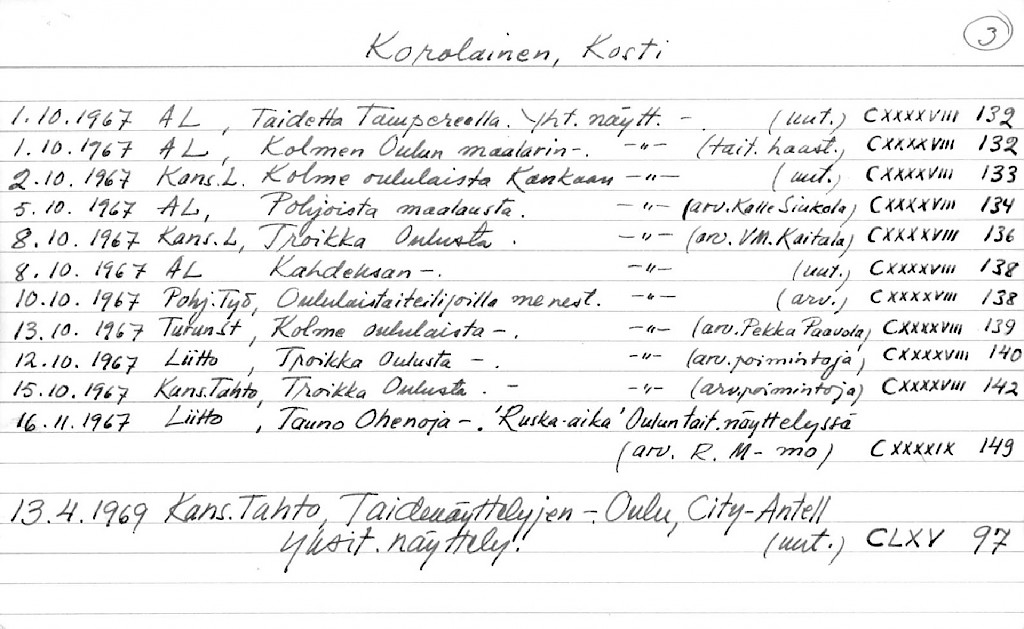 3
Korolainen, Kosti
1.10.1967 AL, Taidetta Tampereella. Yht. näytt. -. (uut.) CXXXXVIII 132
1.10.1967 AL, Kolmen Oulun maalarin-. -"- (tait. haast.) CXXXXVIII 132
2.10.1967 Kans.L. Kolme oululaista Kankaan -"- (uut.) CXXXXVIII 133
5.10.1967 AL, Pohjoista maalausta. -"- (arv. Kalle Siukola) CXXXXVIII 134
8.10.1967 Kans.L, Troikka Oulusta. -"- (arv. VM. Kaitala) CXXXXVIII 136
8.10. 1967 AL Kahdeksan-. -"- (uut.) CXXXXVIII 138
10.10. 1967 Pohj.Työ, Oululaistaiteilijoilla menest. -"- (arv.) CXXXXVIII 138
13.10. 1967 Turun.st, Kolme oululaista-. -"- (arv. Pekka Paavola) CXXXXVIII 139
12.10. 1967 Liitto, Troikka Oulusta -. -"- (arv. poimintoja) CXXXXVIII 140
15.10.1967 Kans.Tahto, Troikka Oulusta. - -"- (arv.poimintoja) CXXXXVIII 142
16.11.1967 Liitto, Tauno Ohenoja-. 'Ruska-aika' Oulun tait. näyttelyssä
(arv. R. M-mo) CXXXXIX 149
13.4.1969 Kans.Tahto, Taidenäyttelyjen-. Oulu, City-Antell
Yksit. näyttely. (uut.) CLXV 97